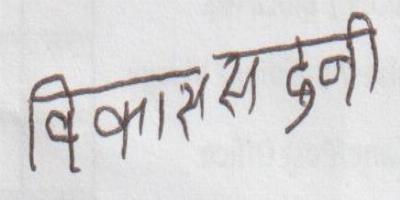 विकाससदुनी